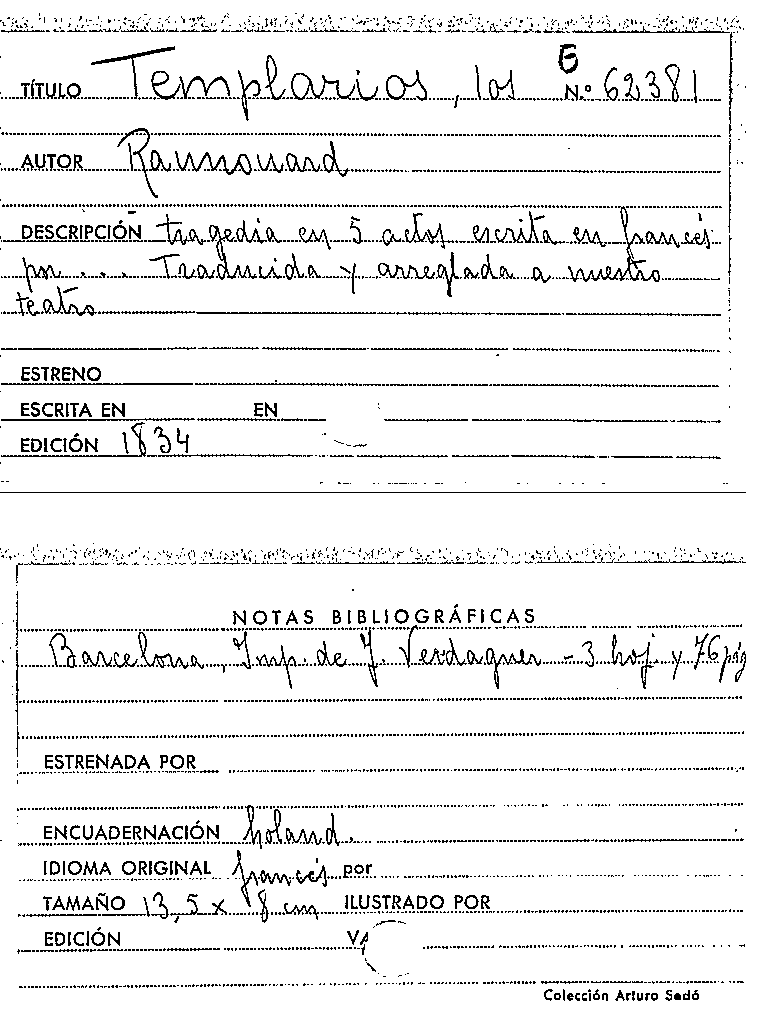 G
TÍTULO Templarios, los N.º 62381
AUTOR Raynouard
DESCRIPCIÓN tragedia en 5 actos escrita en francés
por ... Traducida y arreglada a nuestro
teatro
ESTRENO
ESCRITA EN EN
EDICIÓN 1834
NOTAS BIBLIOGRÁFICAS
Barcelona, Imp. de J. Verdaguer - 3 hoj. y 76 pág
ESTRENADA POR
ENCUADERNACIÓN holand.
IDIOMA ORIGINAL francés por
TAMAÑO 13,5 x 8 cm ILUSTRADO POR
EDICIÓN
Colección Arturo Sedó